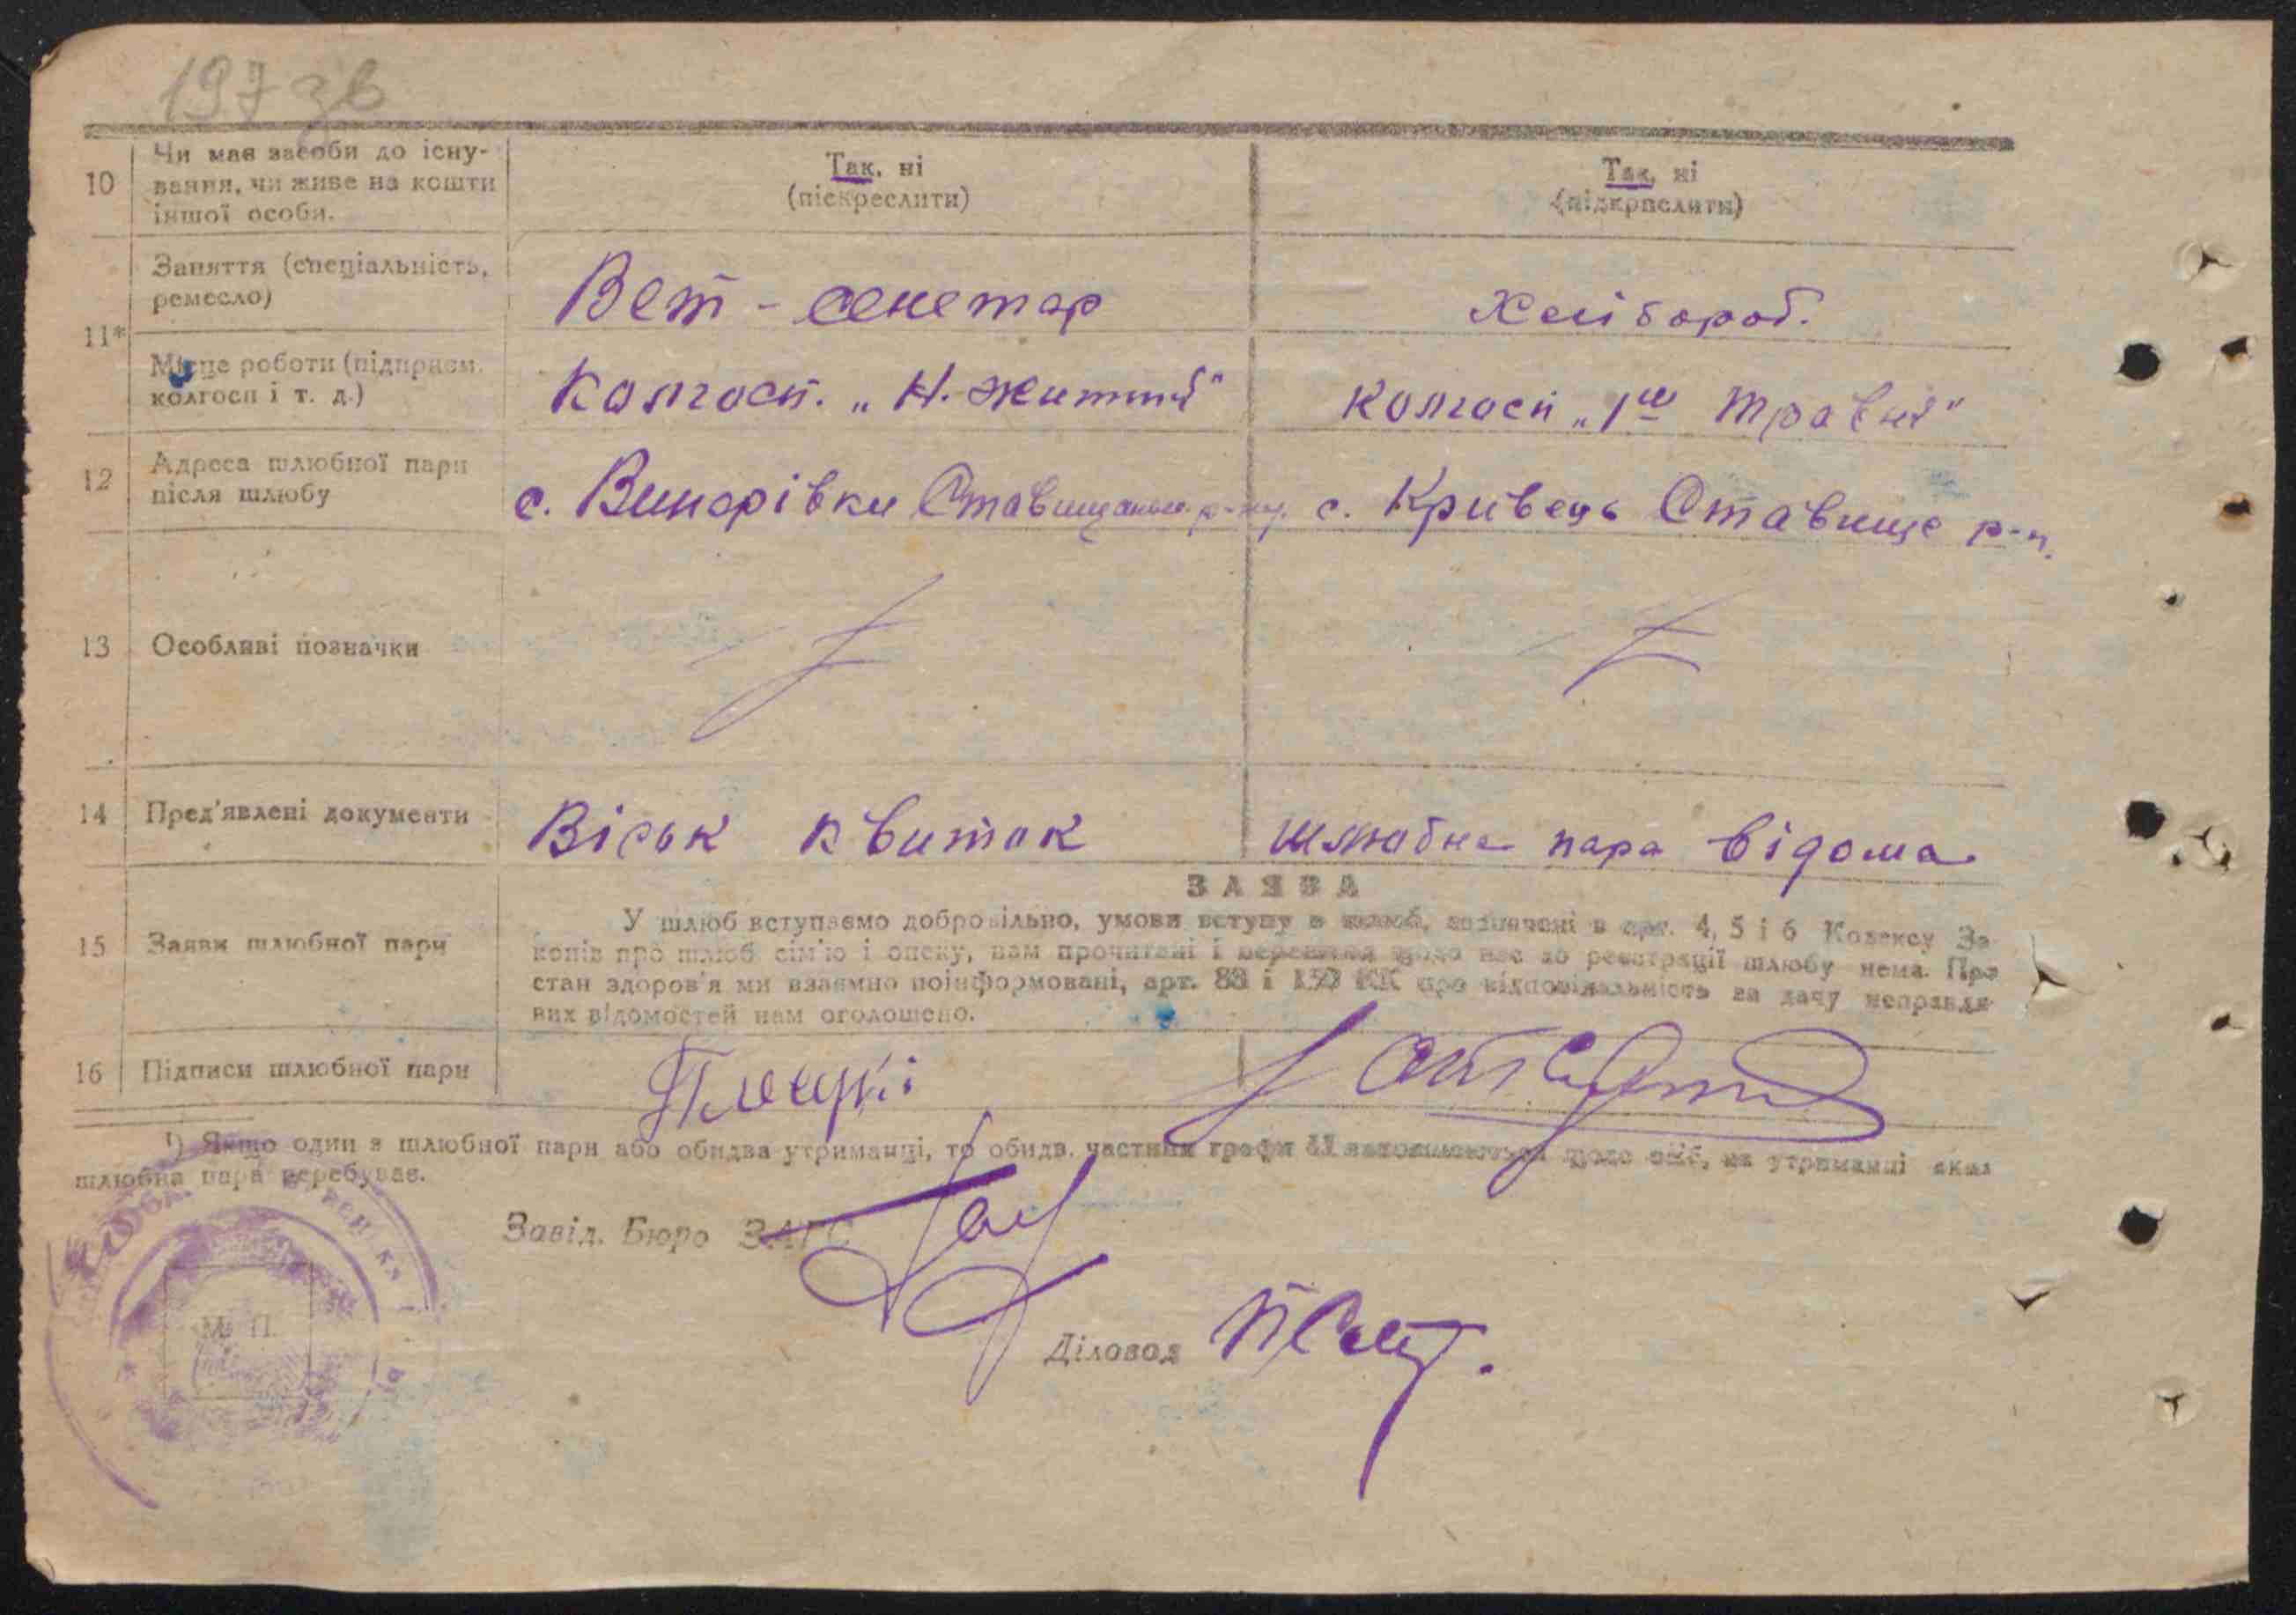 197 зв
10
Чи має засоби до існу-
вання, чи живе на кошти
іншої особи.
Так, ні
(піскреслити)
Так, ні
(підкрпслити)
11*
Заняття (спеціальність,
ремесло)
Вет - сенетар
Хлібороб.
Місце роботи (підприєм.
колгосп і т. д.)
Колгосп. „Н. Життя"
колгосп „1ше Травня"
12
Адреса шлюбної пари
після шлюбу
с. Винарівки Ставищанськ. р-ну.
с. Кривець Ставище р-н.
13
Особливі позначки
14
Пред'явлені документи
Віськ квиток
шлюбна пара відома
15
Заяви шлюбної пари
ЗАЯВА
У шлюб вступаємо добровільно, умови вступу в шлюб, зазначені в арт. 4, 5 і 6 Кодексу За
конів про шлюб сім'ю і опеку, нам прочитані і перешкод щодо нас до реєстрації шлюбу нема. Про
стан здоров'я ми взаємно поінформовані, арт. 88 і 159 КК про відповідальність за дачу неправди
вих відомостей нам оголошено.
16
Підписи шлюбної пари
¹) Якщо один з шлюбної пари або обидва утриманці, то обидв. частини графи 11 заповнюються щодо осіб, на утриманні яких
шлюбна пара перебуває.
Завід. Бюро ЗАГС
М. П.
Діловод